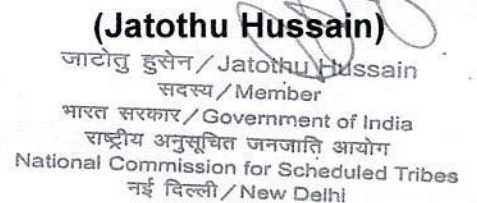 (Jatothu Hussain)
जाटोतु हुसेन/Jatothu Hussain
सदस्य/Member
भारत सरकार/Government of India
राष्ट्रीय अनुसूचित जनजाति आयोग
National Commission for Scheduled Tribes
नई दिल्ली/New Delhi